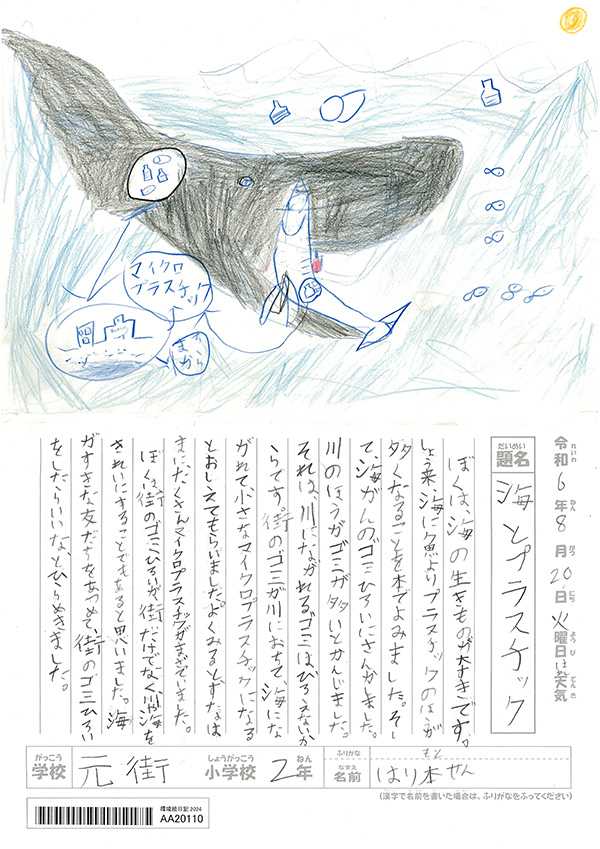 マイクロ
プラスチック
令和6年8月20日火曜日 天気
れいわ ねん がつ にち ようび てんき
だいめい
題名
海とプラスチック
ぼくは、海の生きものが大すきです。
しょう来、海に魚よりプラスチックのほうが
多くなることを本でよみました。そし
て、海がんのゴミひろいにさんかしました。
川のほうがゴミが多いとかんじました。
それは、川にながれるゴミはひろえないか
らです。街のゴミが川におちて、海にな
がれて小さなマイクロプラスチックになる
とおしえてもらいました。よくみるとすなは
まに、たくさんマイクロプラスチックがまざっていました。
ぼくは、街のゴミひろいが、街だけでなく川や海を
きれいにすることでもあると思いました。海
がすきな友だちをあつめて、街のゴミひろい
をしたらいいなとひらめきました。
がっこう しょうがっこう ねん ふりがな もと
学校 元街 小学校 2年 なまえ 名前 はり本 せん
(漢字で名前を書いた場合は、ふりがなをふってください)
環境絵日記 2024
AA20110